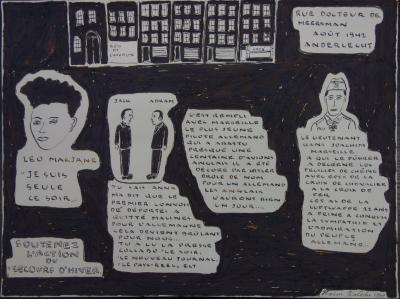 RUE DOCTEUR DE
MEERSMAN
AOÛT 1942
ANDERLECHT
LÉO MARJANE
"JE SUIS
SEULE
CE SOIR.
SOUTENEZ
L'ACTION
DU
"SECOURS D'HIVER"
ABRAM
TU SAIS ANNA
MA DIT QUE LE
PREMIER CONVOI
DE DÉPORTÉ A
QUITTÉ MALINES
POUR L'ALLEMAGNE
CELA DEVIENT BRÛLANT
POUR NOUS...
TU A LU LA PRESSE
COLLABO "LE SOIR,
"LE NOUVEAU JOURNAL
"LE PAYS RÉEL, ECT
C'EST REMPLI
AVEC MARSEILLE
LE PLUS JEUNE
PILOTE ALLEMAND
QUI A ABATTU
PRESQUE UNE
CENTAINE D'AVIONS
ANGLAIS IL A ÉTÉ
DÉCORÉ PAR HITLER
DRÔLE DE NOM
POUR UN ALLEMAND
LES ANGLAIS
L'AURONS BIEN
UN JOUR...
LE LIEUTENANT
HANS JOACHIM
MARSEILLE
A QUI LE FÜHRER
A DÉCERNÉ LES
FEUILLES DE CHÊNE
CROIX DE CHEVALIER
DE LA CROIX DE
FER.
CET AS DE LA
LUFTWAFFE 22 ANS
A PEINE A CONQUIS
LA SYMPATHIE
L'ADMIRATION
DU PEUPLE
ALLEMAND..